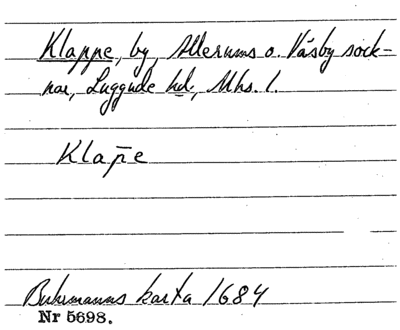 Klappe, by, Allerums o. Väsby sock-
nar, Luggude hd, Mhs. l.
Klap̄e
Buhrmanns karta 1684
Nr 5698.